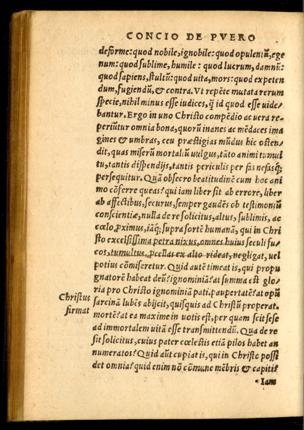 CONCIO DE PVERO
deforme: quod nobile, ignobile: quod opulentũ, ege
num: quod sublime, humile: quod lucrum, damnũ:
quod sapiens, stultũ: quod uita, mors: quod expeten
dum, fugiendũ, & contra. Vt repẽte mutata rerum
specie, nihil minus esse iudices, q̃ id quod esse uide-
bantur. Ergo in uno Christo compẽdio ac uera re-
periũtur omnia bona, quorũ inanes ac mẽdaces ima
gines & umbras, ceu præstigias mũdus hic osten-
dit, quas miserũ mortaliũ uulgus, tãto animi tumul
tu, tantis dispendijs, tantis periculis per fas nefasq;
persequitur. Quã obsecro beatitudinẽ cum hoc ani
mo cõferre queas? qui iam liber sit ab errore, liber
ab affectibus, securus, semper gaudẽs ob testimoniũ
conscientiæ, nulla de re solicitus, altus, sublimis, ac
cœlo, ꝓximus, iãq; supra sortẽ humanã, qui in Chri
sto excelsissima petra nixus, omnes huius seculi fu
cos, tumultus, ꝓcellas ex alto rideat, negligat, uel
potius cõmiseretur. Quid autẽ timeat is, qui propu
gnatorẽ habeat deũ? ignominiã? at summa est glo
ria pro Christo ignominiã pati. paupertatẽ? at opũ
sarcinã lubẽs abijcit, quisquis ad Christũ properat.
mortẽ? at ea maxime in uotis est, per quam scit sese
ad immortalem uitã esse transmittendũ. Qua de re
sit solicitus, cuius pater cœlestis etiã pilos habet an
numeratos? Quid aũt cupiat is, qui in Christo possi
det omnia? quid enim nõ cõmune mẽbris & capiti?
Iam
Christus
firmat